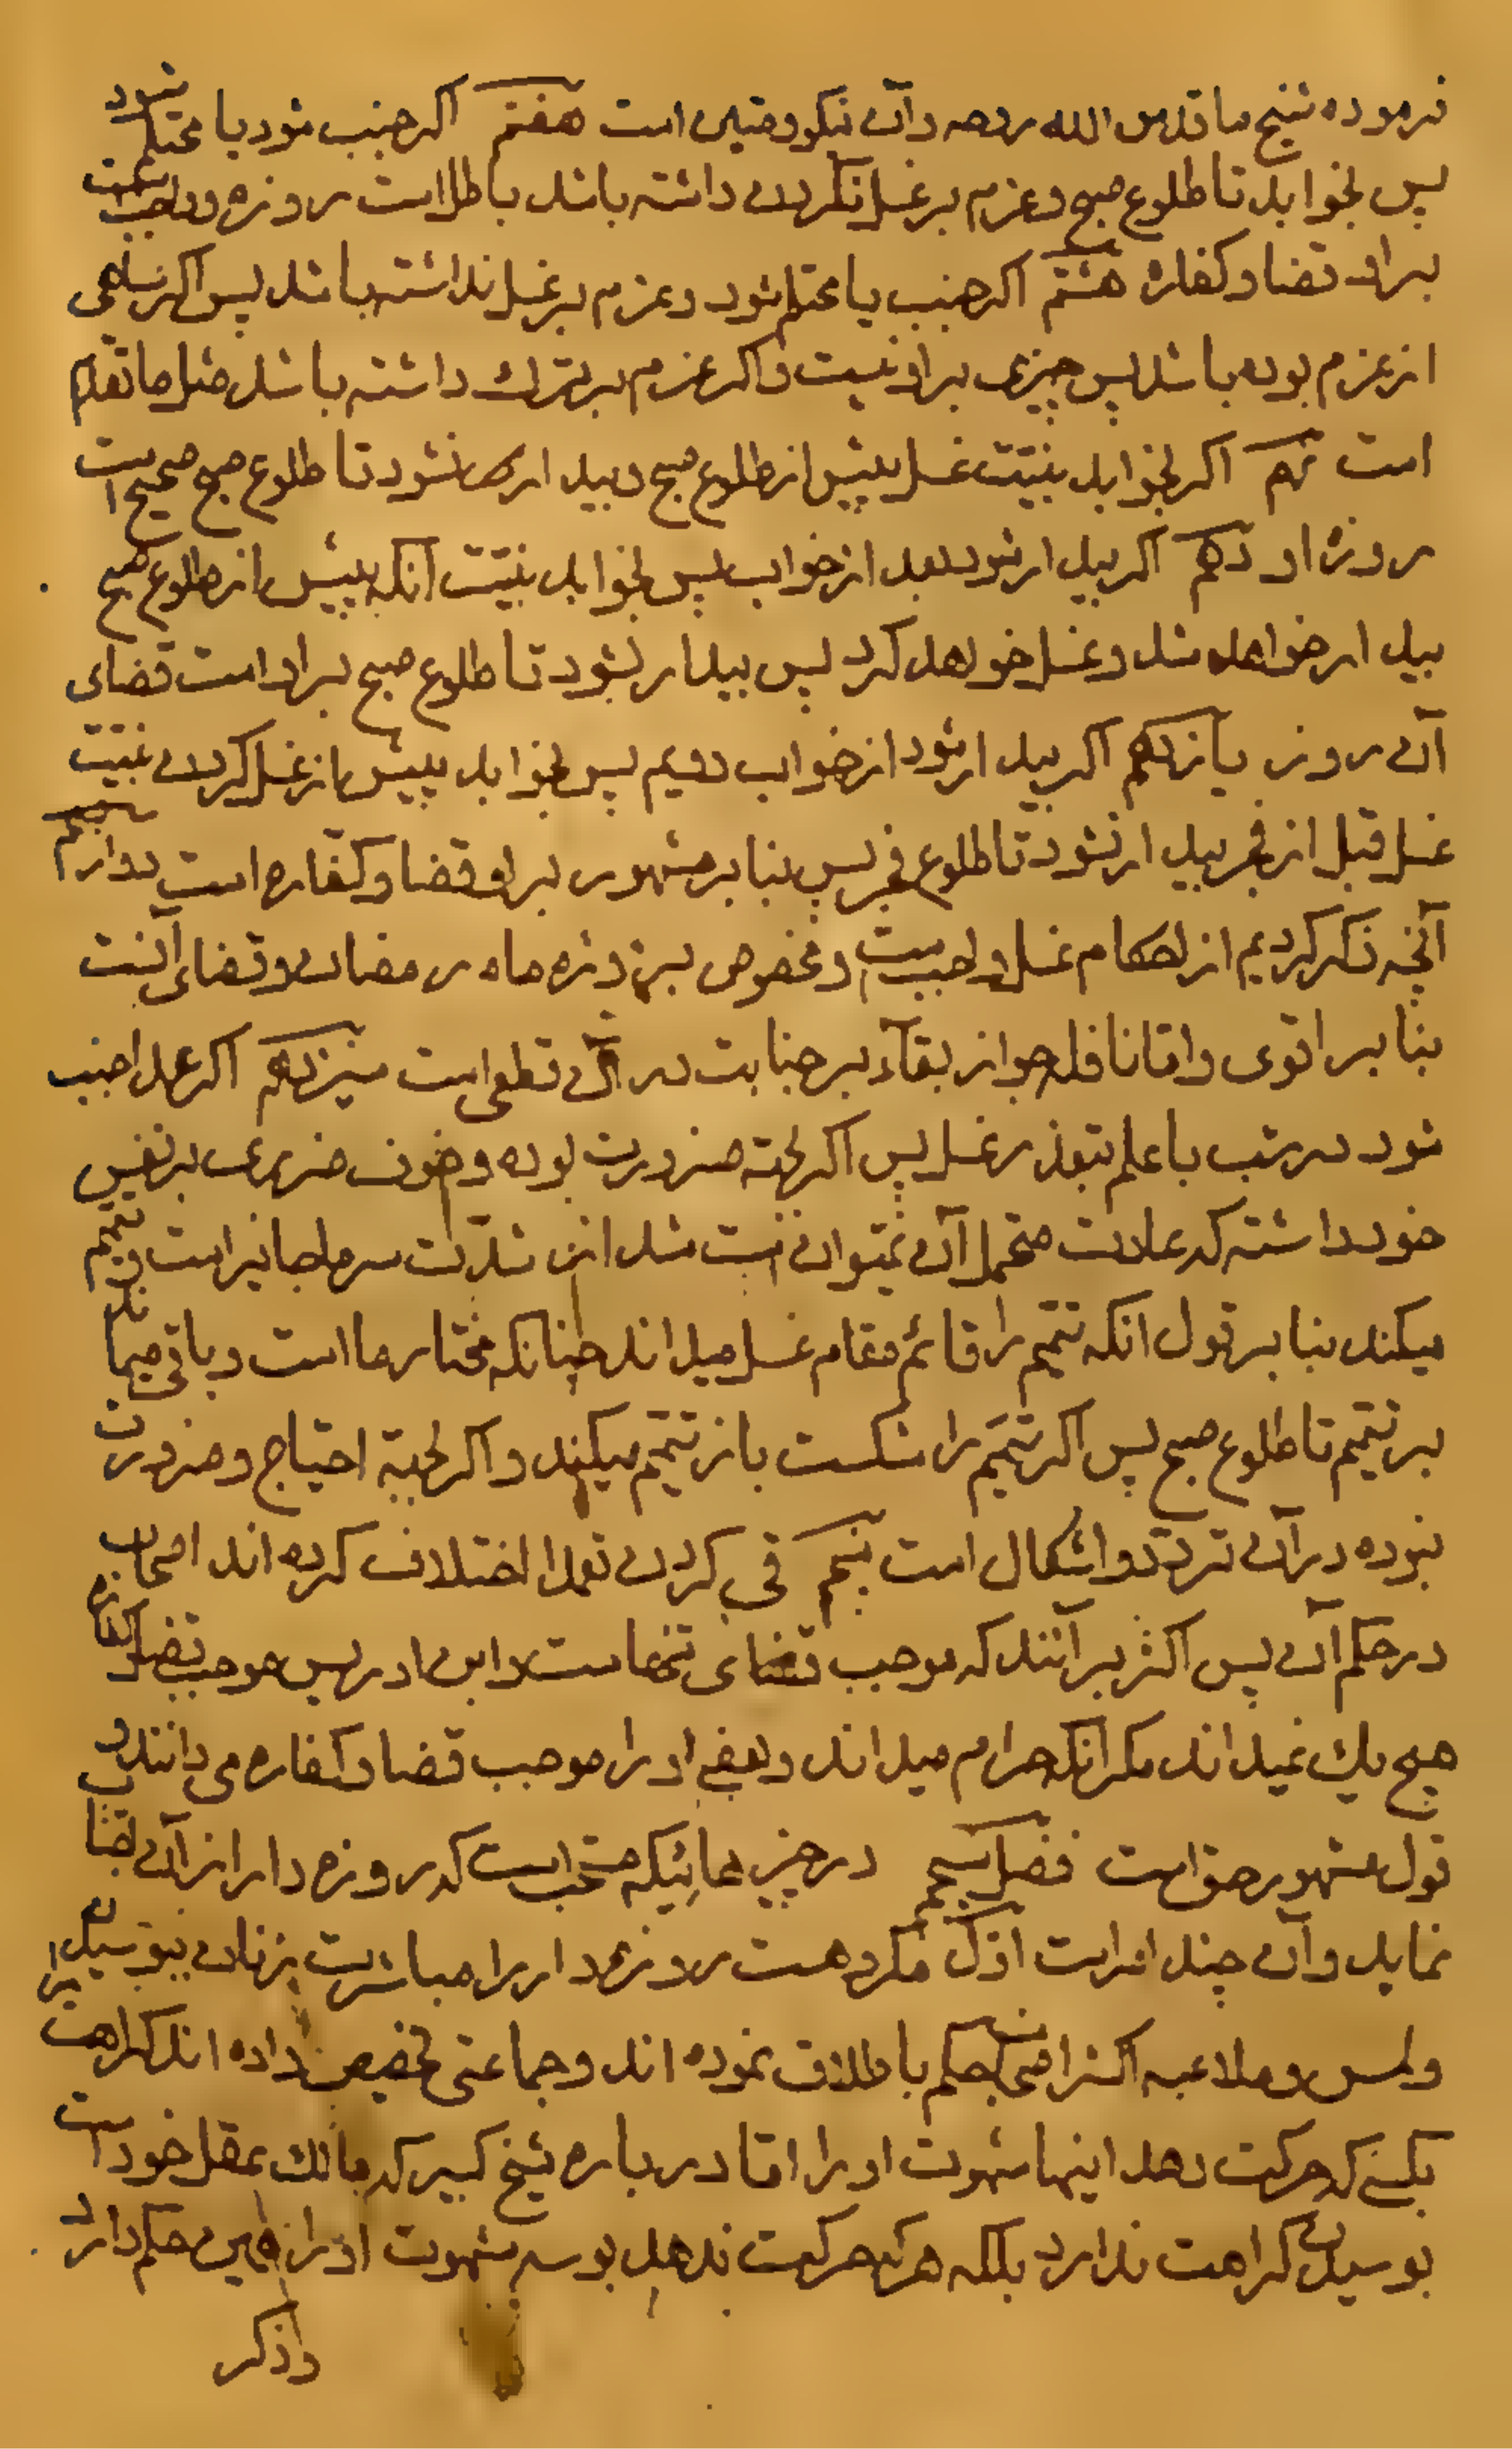 فرموده شیخ ما قدس الله روحه و آن نیکو و متین است هفتم اکر جنب شود یا محتلم شود
پس بخوابد تا طلوع صبح و عزم بر غسل نکردن داشته باشد باطل است روزه و واجبست
بر او قضا و کفاره هشتم اکر جنب یا محتلم شود و عزم بر غسل نداشته باشد پس اکر ساهی
از عزم بوده باشد پس چیزی بر او نیست و اکر عزم بر ترك داشته باشد مثل ما تقدم
است نهم اکر بخوابد بنیت غسل پیش از طلوع صبح و بیدار نشود تا طلوع صبح صحیح است
روزه او دهم اکر بیدار شود بعد از خواب پس بخوابد بنیت آنکه پیش از طلوع صبح
بیدار خواهد شد و غسل خواهد کرد پس بیدار نشود تا طلوع صبح بر او است قضای
آن روز یازدهم اکر بیدار شود از خواب دویم پس بخوابد پیش از غسل کردن بنیت
غسل قبل از فجر بیدار نشود تا طلوع فجر پس بنا بر مشهور بر او قضا و کفاره است دوازدهم
آنچه ذکر کردیم از احکام غسل واجب است و مخصوص بروزه ماه رمضان و قضای آنست
بنا بر اقوی و اما نافله جواز بقآء بر جنابت در آن قطعی است سیزدهم اکر عمدا جنب
شود در شب با علم بتعذر غسل پس اکر بجهة ضرورت بوده و خوف ضرری بر نفس
خود داشته که عادت متحمل آن نمیتوان شد از شدّت سرما جایز است و تیمم
میکند بنا بر قول انکه تیمم را قائم مقام غسل میداند چنانکه مختار ما است و باقی میماند
بر تیمم تا طلوع صبح پس اکر تیمم را شکست باز تیمم میکند و اکر بجهة احتیاج و ضرورت
نبوده در آن تردّد و اشکال است پنجم قی کردن تعمدا اختلاف کرده اند اصحاب
در حکم آن پس اکثر بر آنند که موجب قضای تنها است و ابن ادریس موجب قضا و کفاره
هیچ یك نمیداند مکر آنکه حرام میداند و بعضی او را موجب قضا و کفاره می دانند و
قول مشهور حق است فصل پنجم در چیزهائیکه مستحب است که روزه دار از آن اجتناب
نماید و آن چند امر است اوّل مکروهست روزه دار را مباشرت زنان ببوسیدن
و لمس و ملاعبه اکثر اصحاب حکم باطلاق نموده اند و جماعتی تخصیص داده اند کراهت را
بکسی که حرکت دهد اینها شهوت او را اما در باره شیخ کبیر که مالك عقل خود است
بوسیدن کراهت ندارد بلکه هر که حرکت ندهد بوسه شهوت او را همین حکم دارد
و ذکر